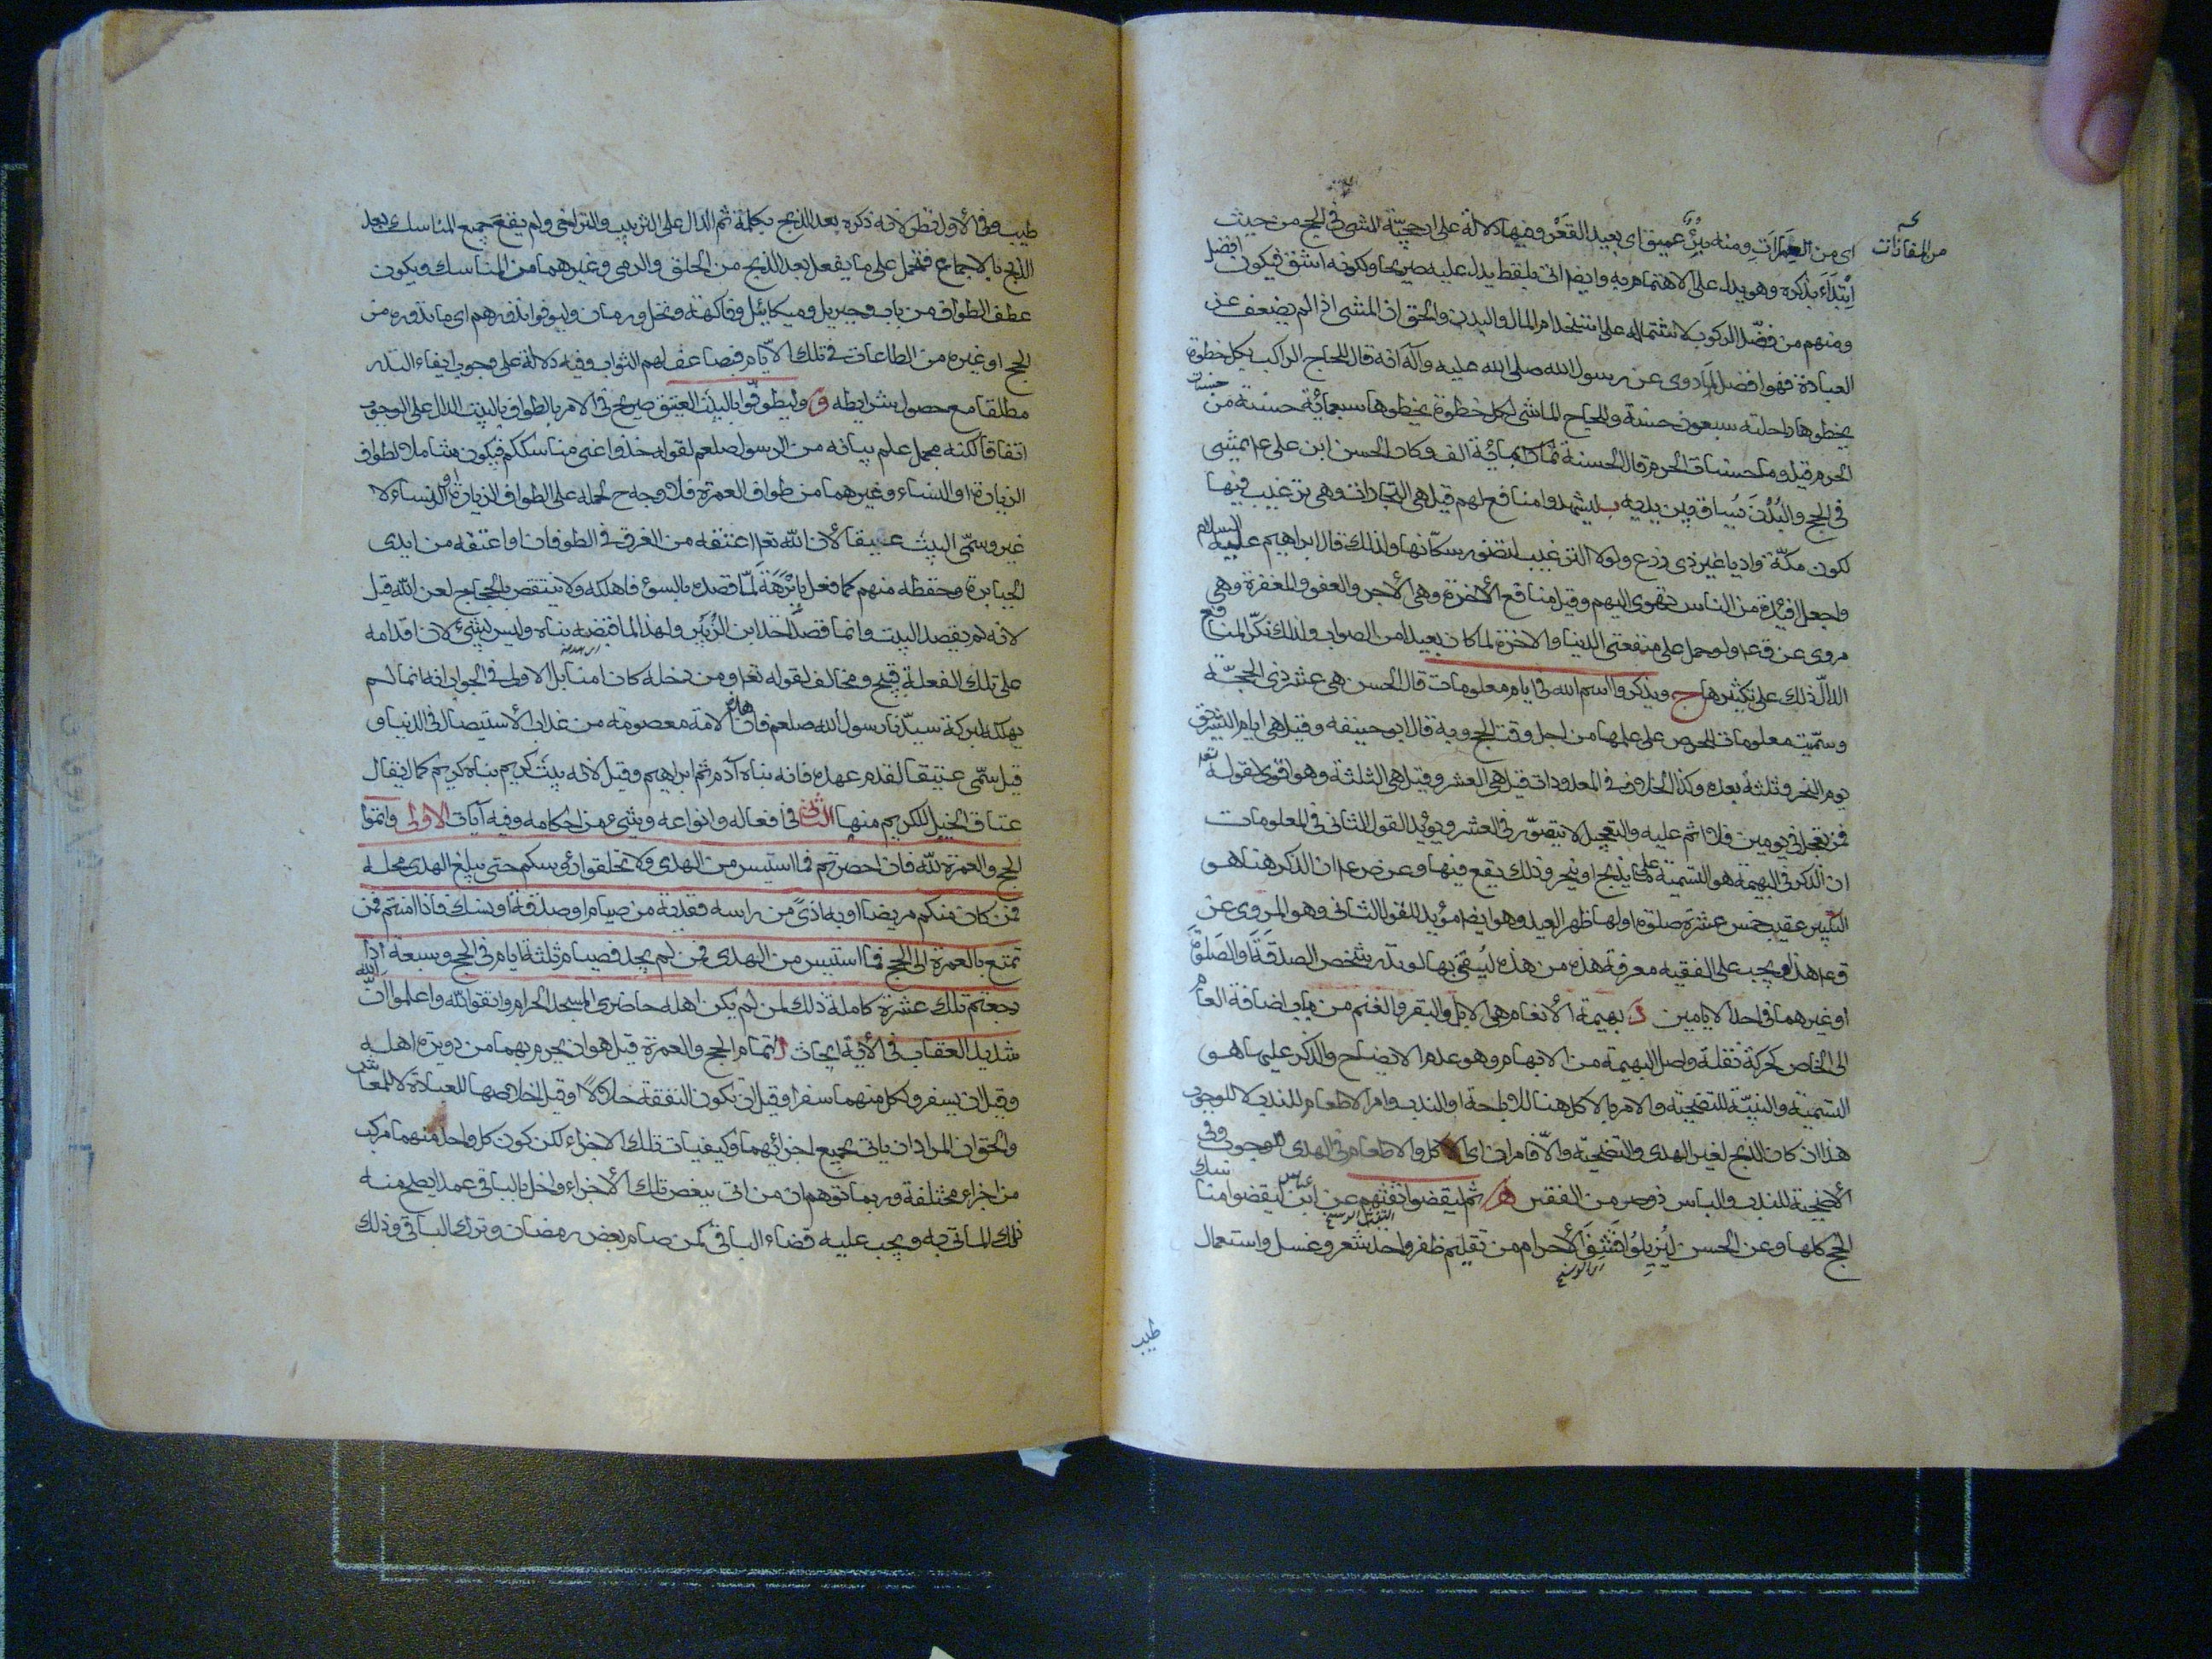 اى من العمارات ومنه بئر عميق اى بعيد القعر وفيها دلالة على ارجحيّة المشى فى الحج من حيث
من المفازات
ابتداء بذكره وهو يدل على الاهتمام به وايضا اتى بلفظ يدل عليه صريحا ولكونه اشق فيكون افضل
ومنهم من فضّل الركوب لاشتماله على استخدام المال والبدن والحق ان المشى اذا لم يضعف عن
العبادة فهو افضل لما روى عن رسول الله صلى الله عليه وآله انه قال للحاج الراكب بكل خطوة
يخطوها راحلته سبعون حسنة وللحاج الماشى بكل خطوة يخطوها سبعمائة حسنة من حسنات
الحرم قيل وما حسنات الحرم قال الحسنة بمائة الف وكان الحسن ابن على ع يمشى
فى الحج والبدن يساق بين يديه ب ليشهدوا منافع لهم قيل هى التجارات وهى ترغيب فيها
لكون مكّة واديا غير ذى زرع ولولا الترغيب لتضور سكّانها ولذلك قال ابراهيم عليه السلام
واجعل افئدة من الناس تهوى اليهم وقيل منافع الأخرة وهى الأجر والعفو والمغفرة وهى
مروى عن ق ع ولو حمل على منفعتى الدنيا والاخرة لما كان بعيدا من الصواب ولذلك نكّر المنافع
الدالّ ذلك على تكثيرها ج ويذكروا اسم الله فى ايام معلومات قال الحسن هى عشر ذى الحجّة
وسمّيت معلومات للحرص على علمها من اجل وقت الحج وبه قال ابو حنيفه وقيل هى ايام التشريق
يوم النحر وثلثة بعده وكذا الخلاف فى المعدودات قيل هى العشر وقيل هى الثلثة وهو اقوى لقوله تعه
فمن تعجل فى يومين فلا اثم عليه والتعجيل لا يتصوّر فى العشر ويؤيد القول الثانى فى المعلومات
ان الذكر فى البهيمة هو التسمية على ما يذبح او ينحر وذلك يقع فيها وعن ص ع ان الذكر هنا هو
التكبير عقيب خمس عشرة صلوة اولها ظهر العيد وهو ايضا مؤيد للقول الثانى وهو المروى عن
ق ع هذا ويجب على الفقيه معرفة هذه من هذه ليُفتى بها لو نذر شخص الصدقة او الصلوة
او غيرهما فى احد الايامين د بهيمة الأنعام هى الابل والبقر والغنم من باب اضافة العام
الى الخاص كحركة نقلة واصل البهيمة من الابهام وهو عدم الايضاح والذكر عليها هو
التسمية والنيّة للتضحية والامر بالاكل هنا للاباحة او الندب وامر الاطعام للندب لا للوجوب
هذا ان كان الذبح لغير الهدى والتضحيّة والّا فامران اى الاكل والاطعام فى الهدى للوجوب وفى
الأضحية للندب والبائس ذو ضر من الفقير ه ثم ليقضوا تفثهم عن ابن عباس ليقضوا مناسك
الحج كلها وعن الحسن ليُزيلوا قشف الأحرام من تقليم ظفر واخذ شعر وغسل واستعمال
طيب
طيب وفى الأول نظر لانه ذكره بعد الذبح بكلمة ثم الدال على الترتيب والتراخى ولم يقع جميع المناسك بعد
الذبح بالاجماع فتحمل على ما يفعل بعد الذبح من الحلق والرمى وغيرهما من المناسك ويكون
عطف الطواف من باب وجبريل وميكائيل وفاكهة ونخل ورمان وليوفوا نذورهم اى ما نذوره من
الحج او غيره من الطاعات فى تلك الايّام فيضاعف لهم الثواب وفيه دلالة على وجوب ايفاء النذر
مطلقا مع حصول شرايطه و وليطوّفوا بالبيت العتيق صريح فى الامر بالطواف بالبيت الدال على الوجوب
اتفاقا لكنه مجمل علم بيانه من الرسول صلعم لقوله خذوا عنى مناسككم فيكون شاملا لطواف
الزيارة او النساء وغيرهما من طواف العمرة فلا وجه ح لحمله على الطواف الزيارة او النساء لا
غير وسمّى البيت عتيقا لأن الله تعه اعتقه من الغرق فى الطوفان او اعتقه من ايدى
الجبابرة وحفظه منهم كما فعل بابرهة لمّا قصده بالسوء فاهلكه ولا ينتقض بالحجاج لعن الله قيل
لانه لم يقصد البيت وانما قصد اخذ ابن الزُّبير ولهذا لما قبضه بناه وليس بشئ لان اقدامه
على تلك الفعلة قبيح ومخالف لقوله تعه ومن دخله كان امنا بل الاولى فى الجواب انه انما لم
يهلكه لبركة سيدنا رسول الله صلعم فان هذه الامة معصومة من عذاب الأستيصال فى الدنيا و
قيل سمّى عتيقا لقدم عهده فانه بناه آدم ثم ابراهيم وقيل لانه بيت كريم بناه كريم كما يقال
عتاق الخيل للكريم منها الثانى فى افعاله وانواعه وشىء من احكامه وفيه آيات الاولى واتموا
الحج والعمرة لله فان احصرتم فما استيسر من الهدى ولا تحلقوا رؤسكم حتى يبلغ الهدى محله
فمن كان منكم مريضا او به اذىً من راسه ففدية من صيام او صدقة او نسك فاذا امنتم فمن
تمتع بالعمرة الى الحج فما استيسر من الهدى فمن لم يجد فصيام ثلثة ايام فى الحج وسبعة اذا
رجعتم تلك عشرة كاملة ذلك لمن لم يكن اهله حاضرى المسجد الحرام واتقوا لله واعلموا انّ الله
شديد العقاب فى الأية ابحاث ا اتمام الحج والعمرة قيل هو ان يحرم بهما من دويرة اهله
وقيل ان يسفر ولكل منهما سفرا وقيل ان تكون النفقة حلالاً وقيل اخلاصها للعبادة لا للمعاش
والحق ان المراد ان ياتى بجميع اجزائهما وكيفيات تلك الاجزاء لكن كون كل واحد منهما مركب
من اجزاء مختلفة وربما توهم ان من اتى ببعض تلك الأجزاء واخل بالباقى عمدا يصلح منه
ذلك الماتى به ويجب عليه قضاء الباقى كمن صام بعض رمضان وترك الباقى وذلك